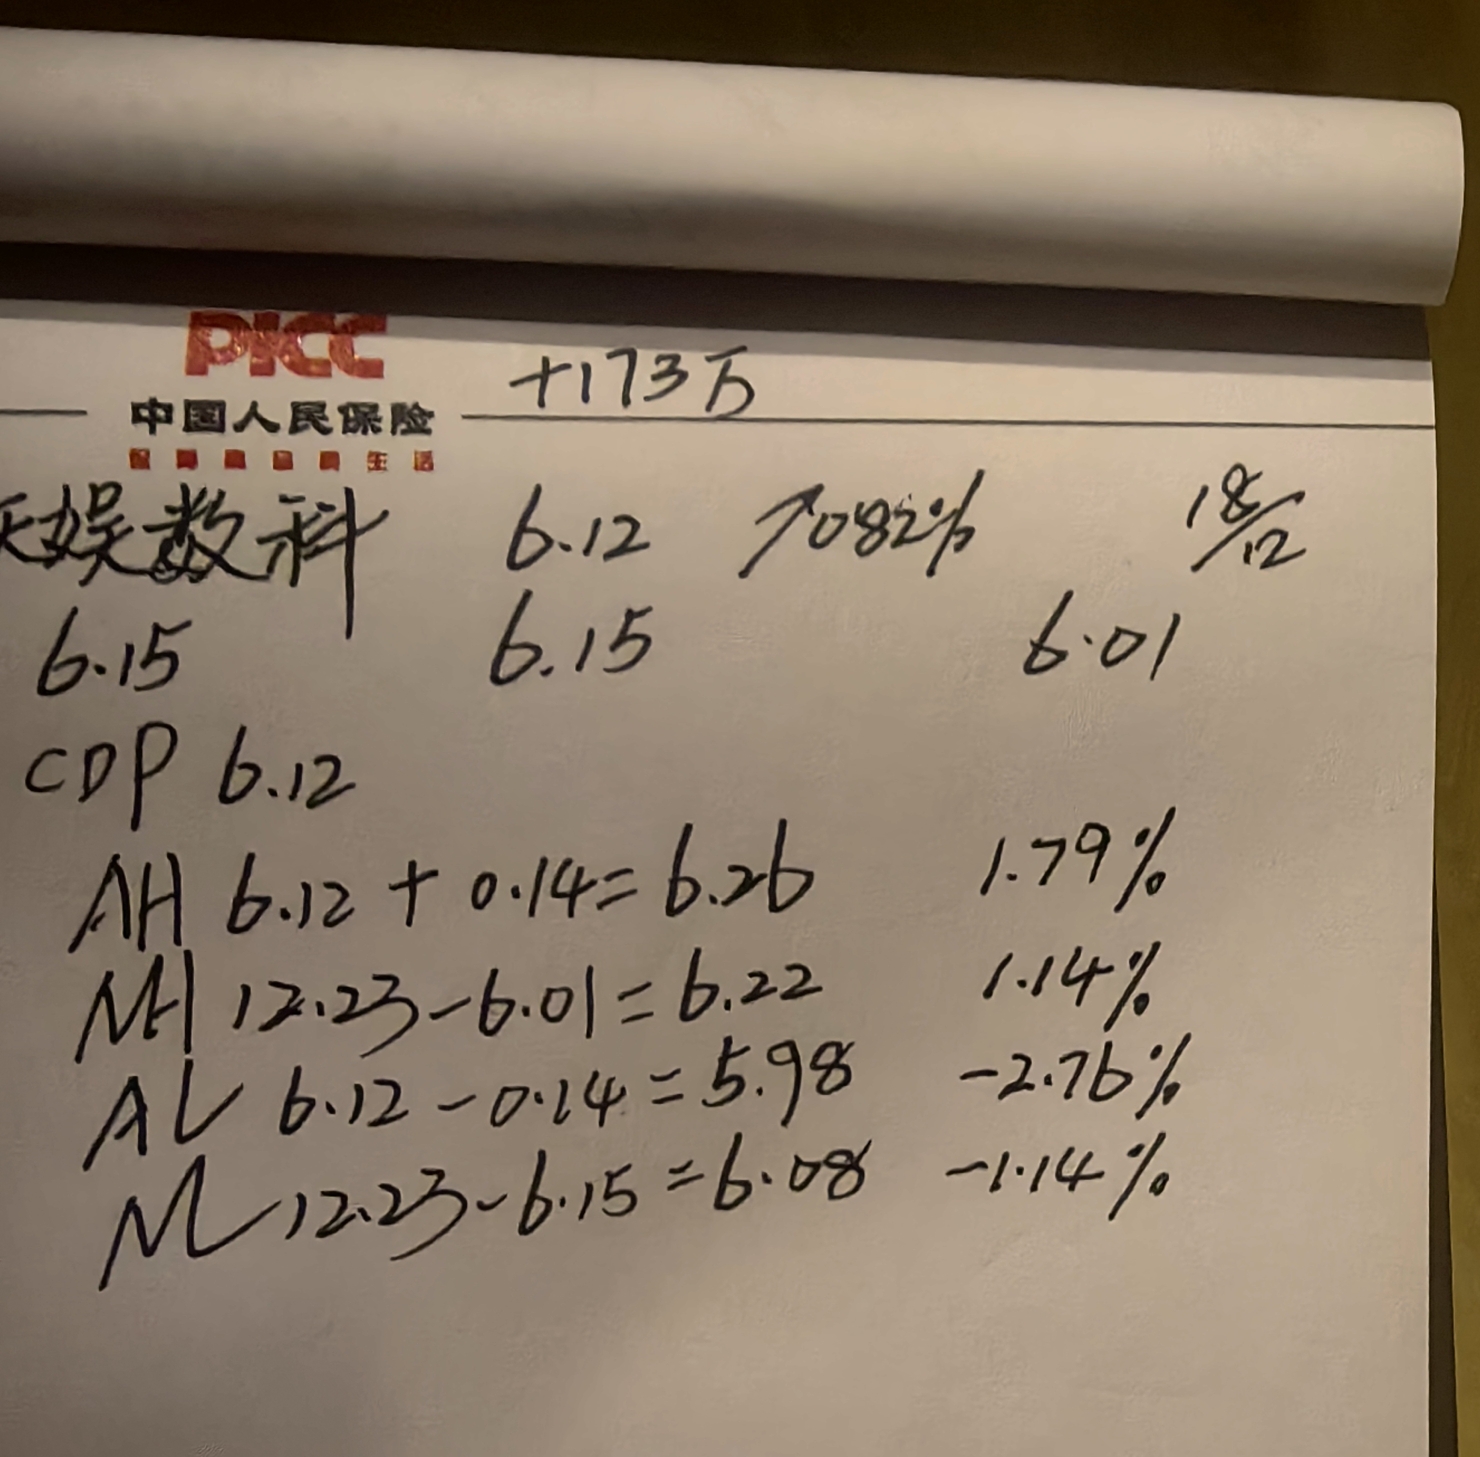 PICC +173万
中国人民保险
生活
天娱数科 6.12 ↗0.82% 18/12
6.15 6.15 6.01
CDP 6.12
AH 6.12 + 0.14 = 6.26 1.79%
NH 12.23 - 6.01 = 6.22 1.14%
AL 6.12 - 0.14 = 5.98 -2.76%
NL 12.23 - 6.15 = 6.08 -1.14%